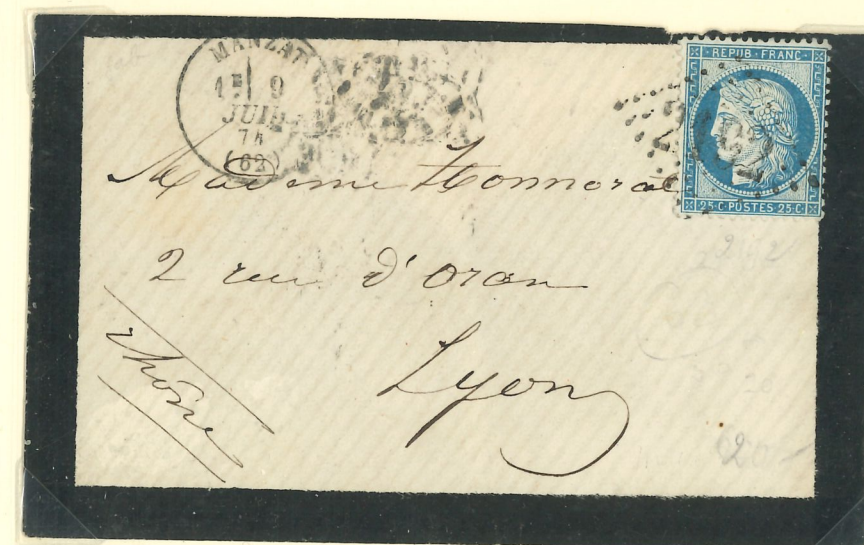 MANZAT
1E 9
JUIL.
74
(62)
REPUB·FRANC·
25·C·POSTES·25·C·
Madame Honnorat
2 rue d'Oran
Lyon
Rhône